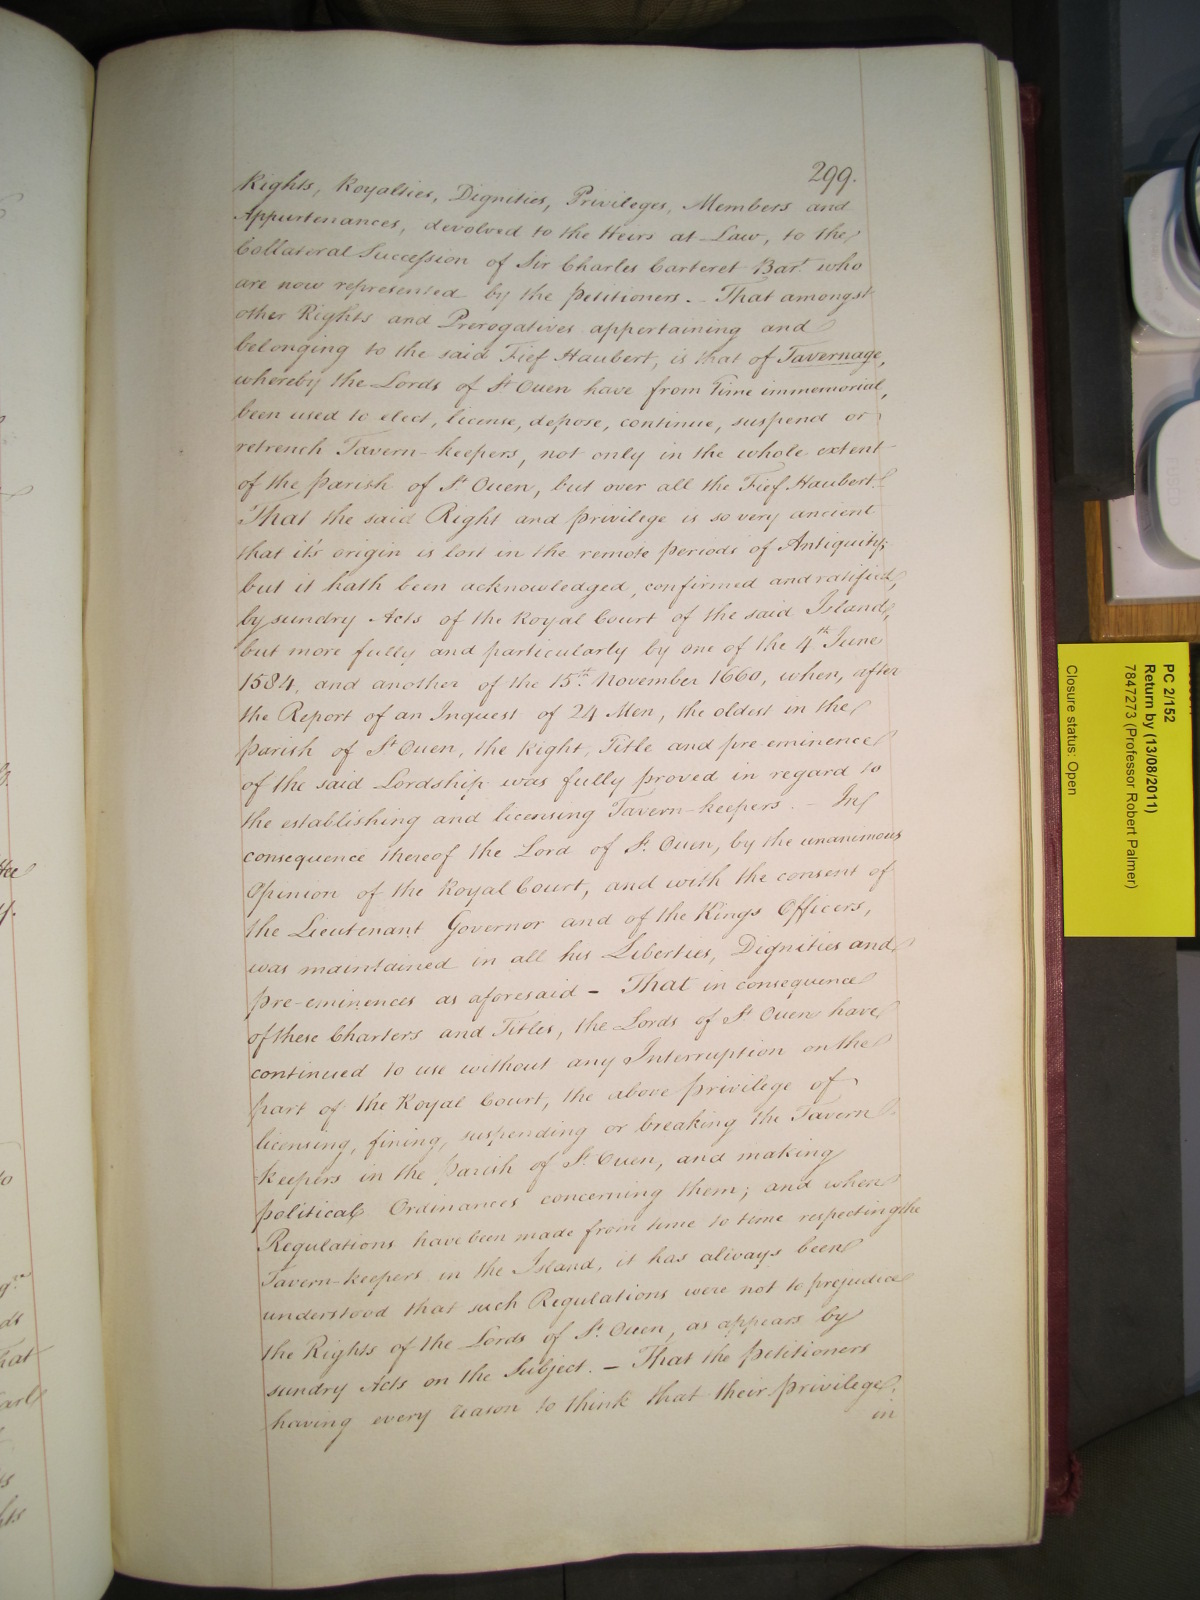 299.
Rights, Royalties, Dignities, Privileges, Members and
Appurtenances, devolved to the Heirs at Law, to the
Collateral Succession of Sir Charles Carteret Bart. who
are now represented by the Petitioners. – That amongst
other Rights and Prerogatives appertaining and
belonging to the said Fief Haubert, is that of Tavernage,
whereby the Lords of St Ouen have from Time immemorial,
been used to elect, license, depose, continue, suspend or
retrench Tavern-keepers, not only in the whole extent
of the Parish of St Ouen, but over all the Fief Haubert.
That the said Right and Privilege is so very ancient
that it's origin is lost in the remote periods of Antiquity;
but it hath been acknowledged, confirmed and ratified,
by sundry Acts of the Royal Court of the said Island,
but more fully and particularly by one of the 4th June
1584, and another of the 15th November 1660, when, after
the Report of an Inquest of 24 Men, the oldest in the
Parish of St Ouen, the Right, Title and pre-eminence
of the said Lordship was fully proved in regard to
the establishing and licensing Tavern-keepers. – In
consequence thereof the Lord of St. Ouen, by the unanimous
Opinion of the Royal Court, and with the consent of
the Lieutenant Governor and of the Kings Officers,
was maintained in all his Liberties, Dignities and
pre-eminences as aforesaid – That in consequence
of these Charters and Titles, the Lords of St Ouen have
continued to use without any Interruption on the
part of the Royal Court, the above privilege of
licensing, fining, suspending or breaking the Tavern
keepers in the Parish of St. Ouen, and making
political Ordinances concerning them; and when
Regulations have been made from time to time respecting the
Tavern-keepers in the Island, it has always been
understood that such Regulations were not to prejudice
the Rights of the Lords of St. Ouen, as appears by
sundry Acts on the Subject. – That the Petitioners
having every reason to think that their Privilege
in
PC 2/152
Return by (13/08/2011)
7847273 (Professor Robert Palmer)
Closure status: Open